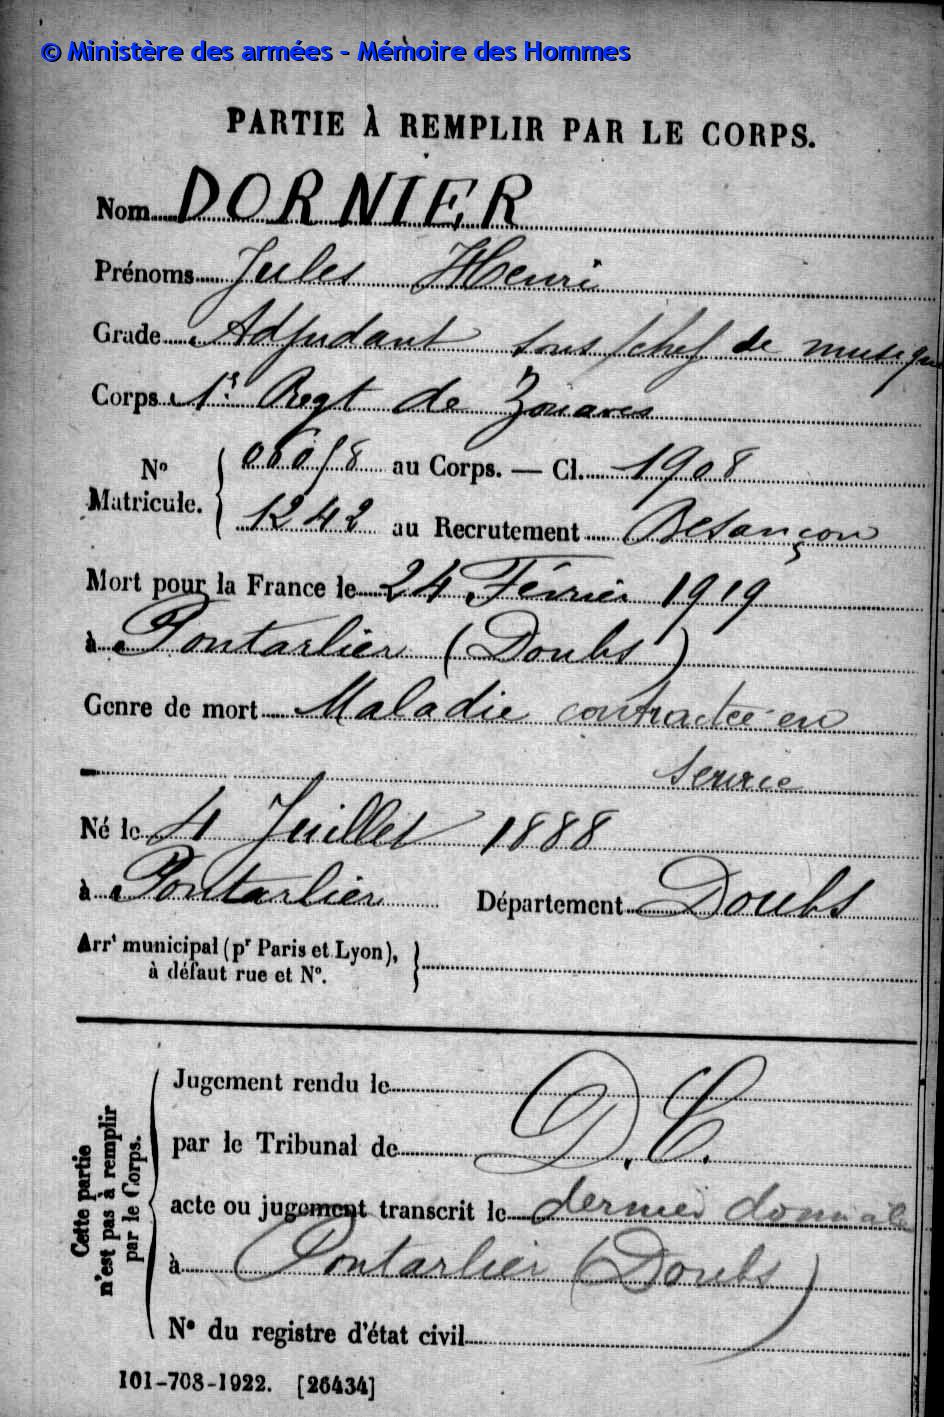 © Ministère des armées - Mémoire des Hommes
PARTIE À REMPLIR PAR LE CORPS.
Nom DORNIER
Prénoms Jules Henri
Grade Adjudant sous/chef de musique
Corps 1er Regt de Zouaves
No Matricule. { 06058 au Corps. — Cl. 1908
1242 au Recrutement Besançon
Mort pour la France le 24 Février 1919
à Pontarlier (Doubs)
Genre de mort Maladie contractée en
service
Né le 4 Juillet 1888
à Pontarlier Département Doubs
Arrt municipal (pr Paris et Lyon), }
à défaut rue et No.
Cette partie
n'est pas à remplir
par le Corps.
Jugement rendu le
par le Tribunal de D.C.
acte ou jugement transcrit le dernier domicile
à Pontarlier (Doubs)
No du registre d'état civil
101-708-1922. [26434]